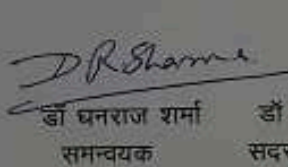 D R Sharma
डॉ घनराज शर्मा डॉ
समन्वयक सदस